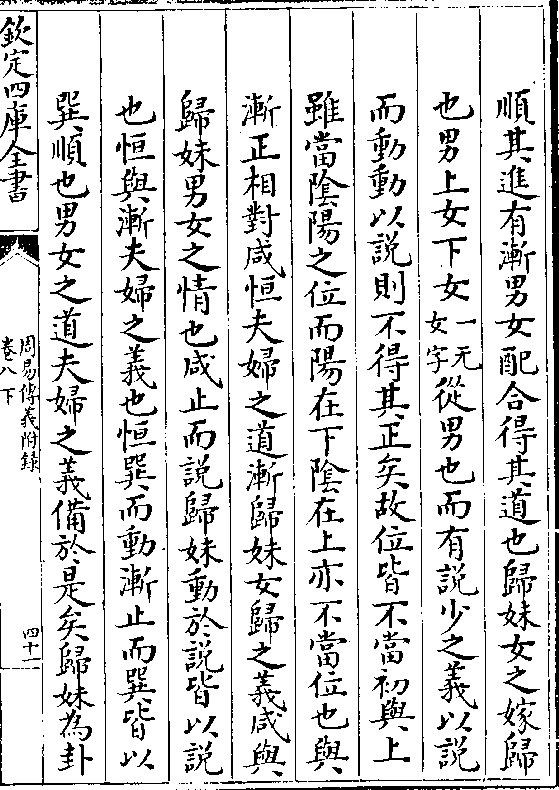 順其進有漸男女配合得其道也歸妹女之嫁歸
也男上女下女一无女字從男也而有説少之義以説
而動動以説則不得其正矣故位皆不當初與上
雖當陰陽之位而陽在下陰在上亦不當位也與
漸正相對咸恒夫婦之道漸歸妹女歸之義咸與
歸妹男女之情也咸止而説歸妹動於説皆以説
也恒與漸夫婦之義也恒巽而動漸止而巽皆以
巽順也男女之道夫婦之義備於是矣歸妹為卦
欽定四庫全書
周易傳義附録
卷八下
四十一